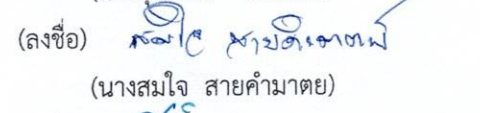 (ลงชื่อ) สมใจ สายคำมาตย์
(นางสมใจ สายคำมาตย)